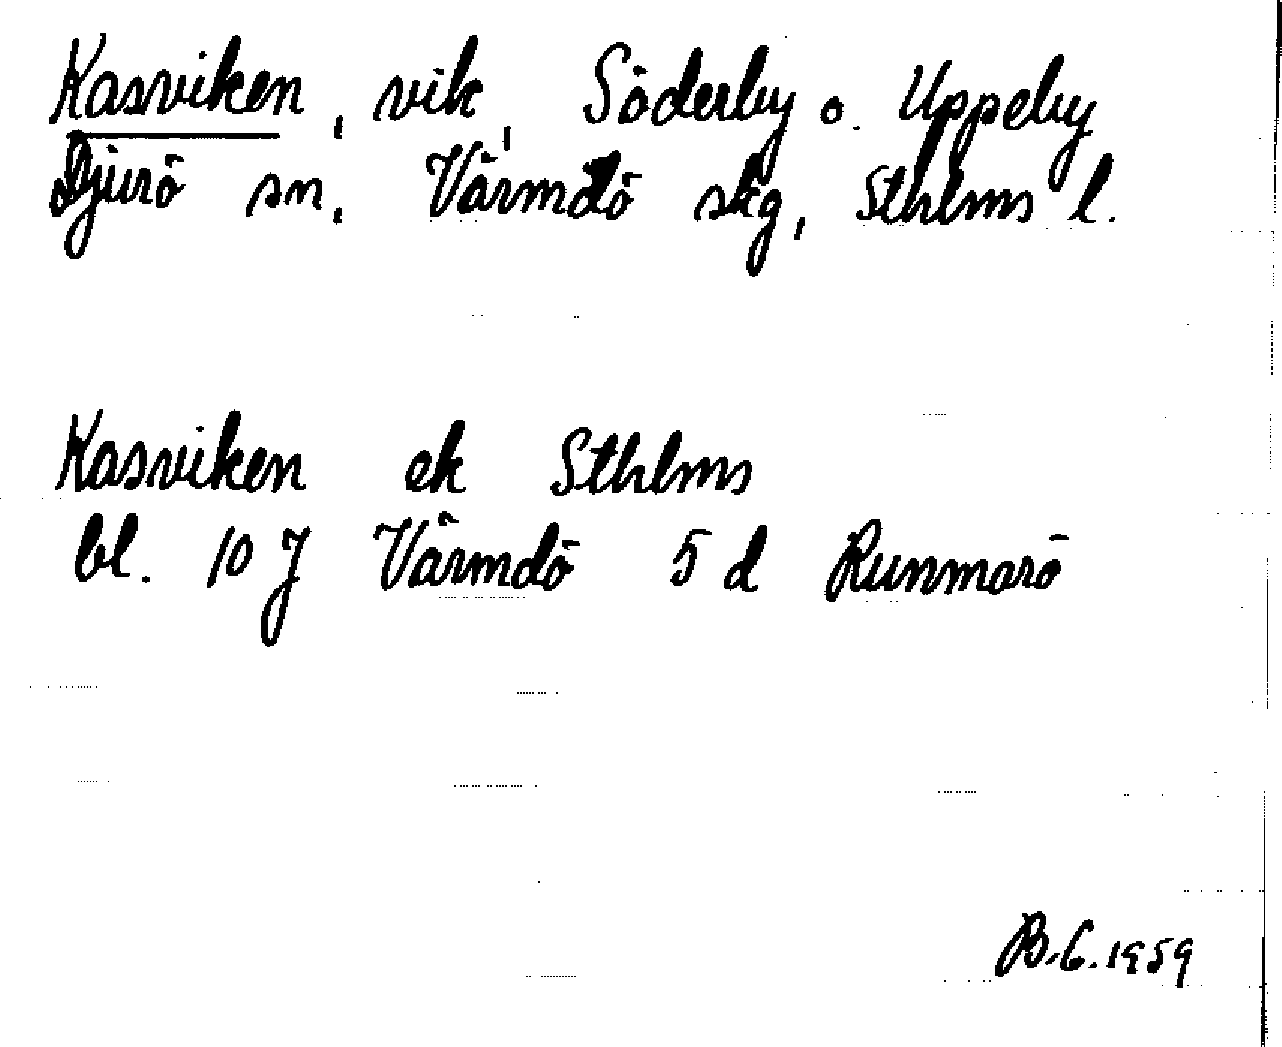 Kasviken, vik, Söderby o. Uppeby
Djurö sn. Värmdö skg, Sthlms l.
Kasviken ek Sthlms
bl. 10 J Värmdö 5 d Runmarö
B.G.1959